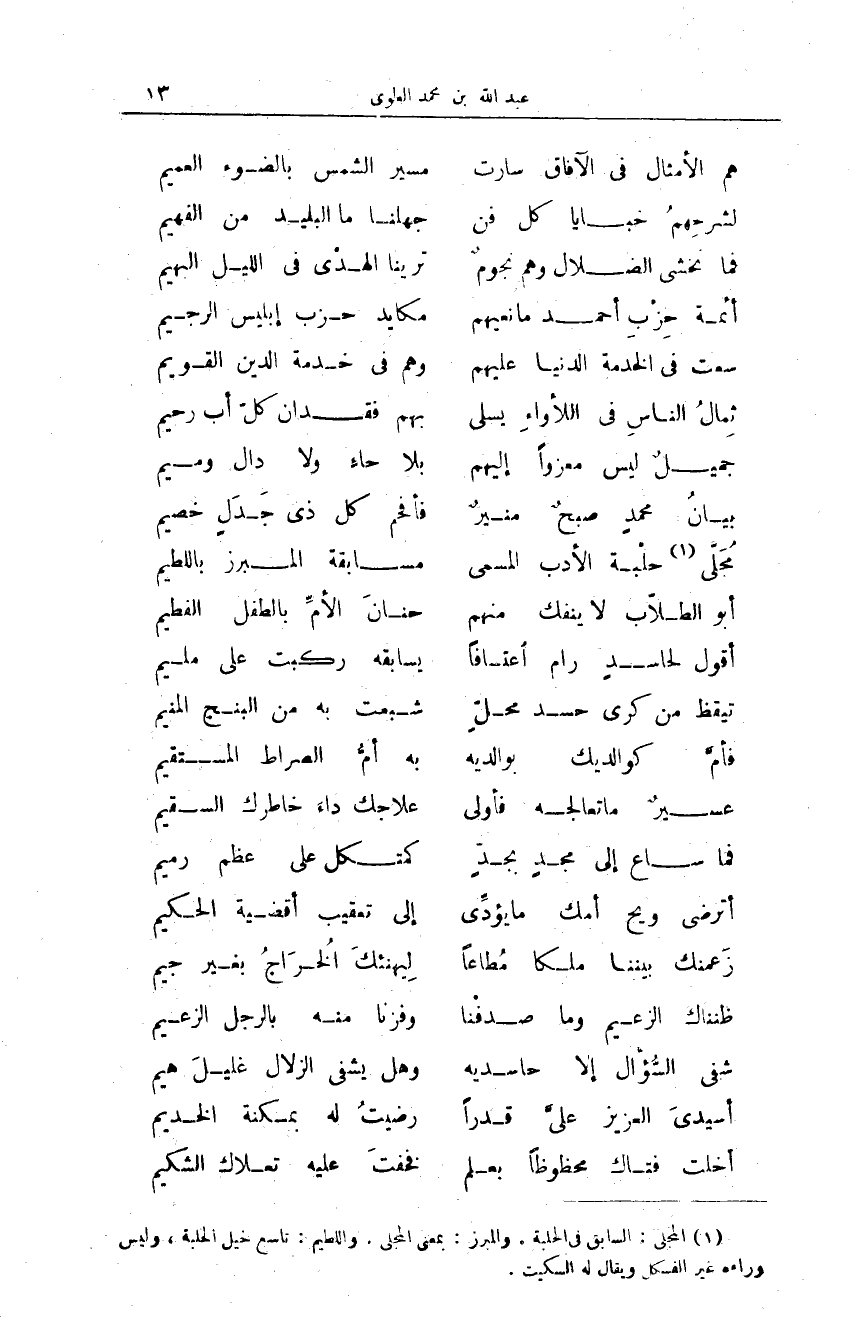 عبد الله بن محمد العلوى ١٣
هم الأمثال فى الآفاق سارت مسير الشمس بالضوء العميم
لشرحِهمُ خبايا كل فن جهلنا ما البليد من الفهيم
فما نخشى الضلال وهم نجومٌ ترينا الهدْى فى الليل البهيم
أئمة حِزْبِ أحمد مانعيهم مكايد حزب إبليس الرجيم
سعت فى الخدمة الدنيا عليهم وهم فى خدمة الدين القويم
ثِمالُ الناسِ فى اللأواءِ يسلى بهم فقدان كلّ أب رحيم
جميلٌ ليس معزواً إليهم بلا حاء ولا دال وميم
بيانُ محمدٍ صبحٌ منيرٌ فأفحم كل ذى جَدَلٍ خصيم
مُجَلَّى (١) حلْبة الأدب المسمى مسابقة المبرز باللطيم
أبو الطلّاب لا ينفك منهم حنانَ الأمِّ بالطفل الفطيم
أقول لحاسدٍ رام اعتسافاً يسابقه ركبت على مليم
تيقظ من كرى حسد محلّ شبعت به من البنج المنيم
فأمَّ كوالديك بوالديه به أمُّ الصراط المستقيم
عسيرٌ ماتعالجه فأولى علاجك داءَ خاطرك السقيم
فما ساع إلى مجدٍ بجدّ كمتكل على عظم رميم
أترضى ويح أمك مايؤدِّى إلى تعقيب أقضية الحكيم
زَعمنك بيننا ملكا مُطاعاً لِيهنئكَ الخُرَاجُ بغير جيم
ظنناك الزعيم وما صدفْنا وفزنا منه بالرجل الزعيم
شفى السُّؤْال إلا حاسديه وهل يشفى الزلال غليلَ هيم
أسيدىَ العزيز علىَّ قدراً رضيتُ له بمسكنة الخديم
أخلت فتاك محظوظاً بعلم فخفتَ عليه تعلاك الشكيم
(١) المجلى : السابق فى الحلبة . والمبرز : بمعنى المجلى . واللطيم : تاسع خيل الحلبة ، وليس
وراءه غير الفسكل ويقال له السكيت .